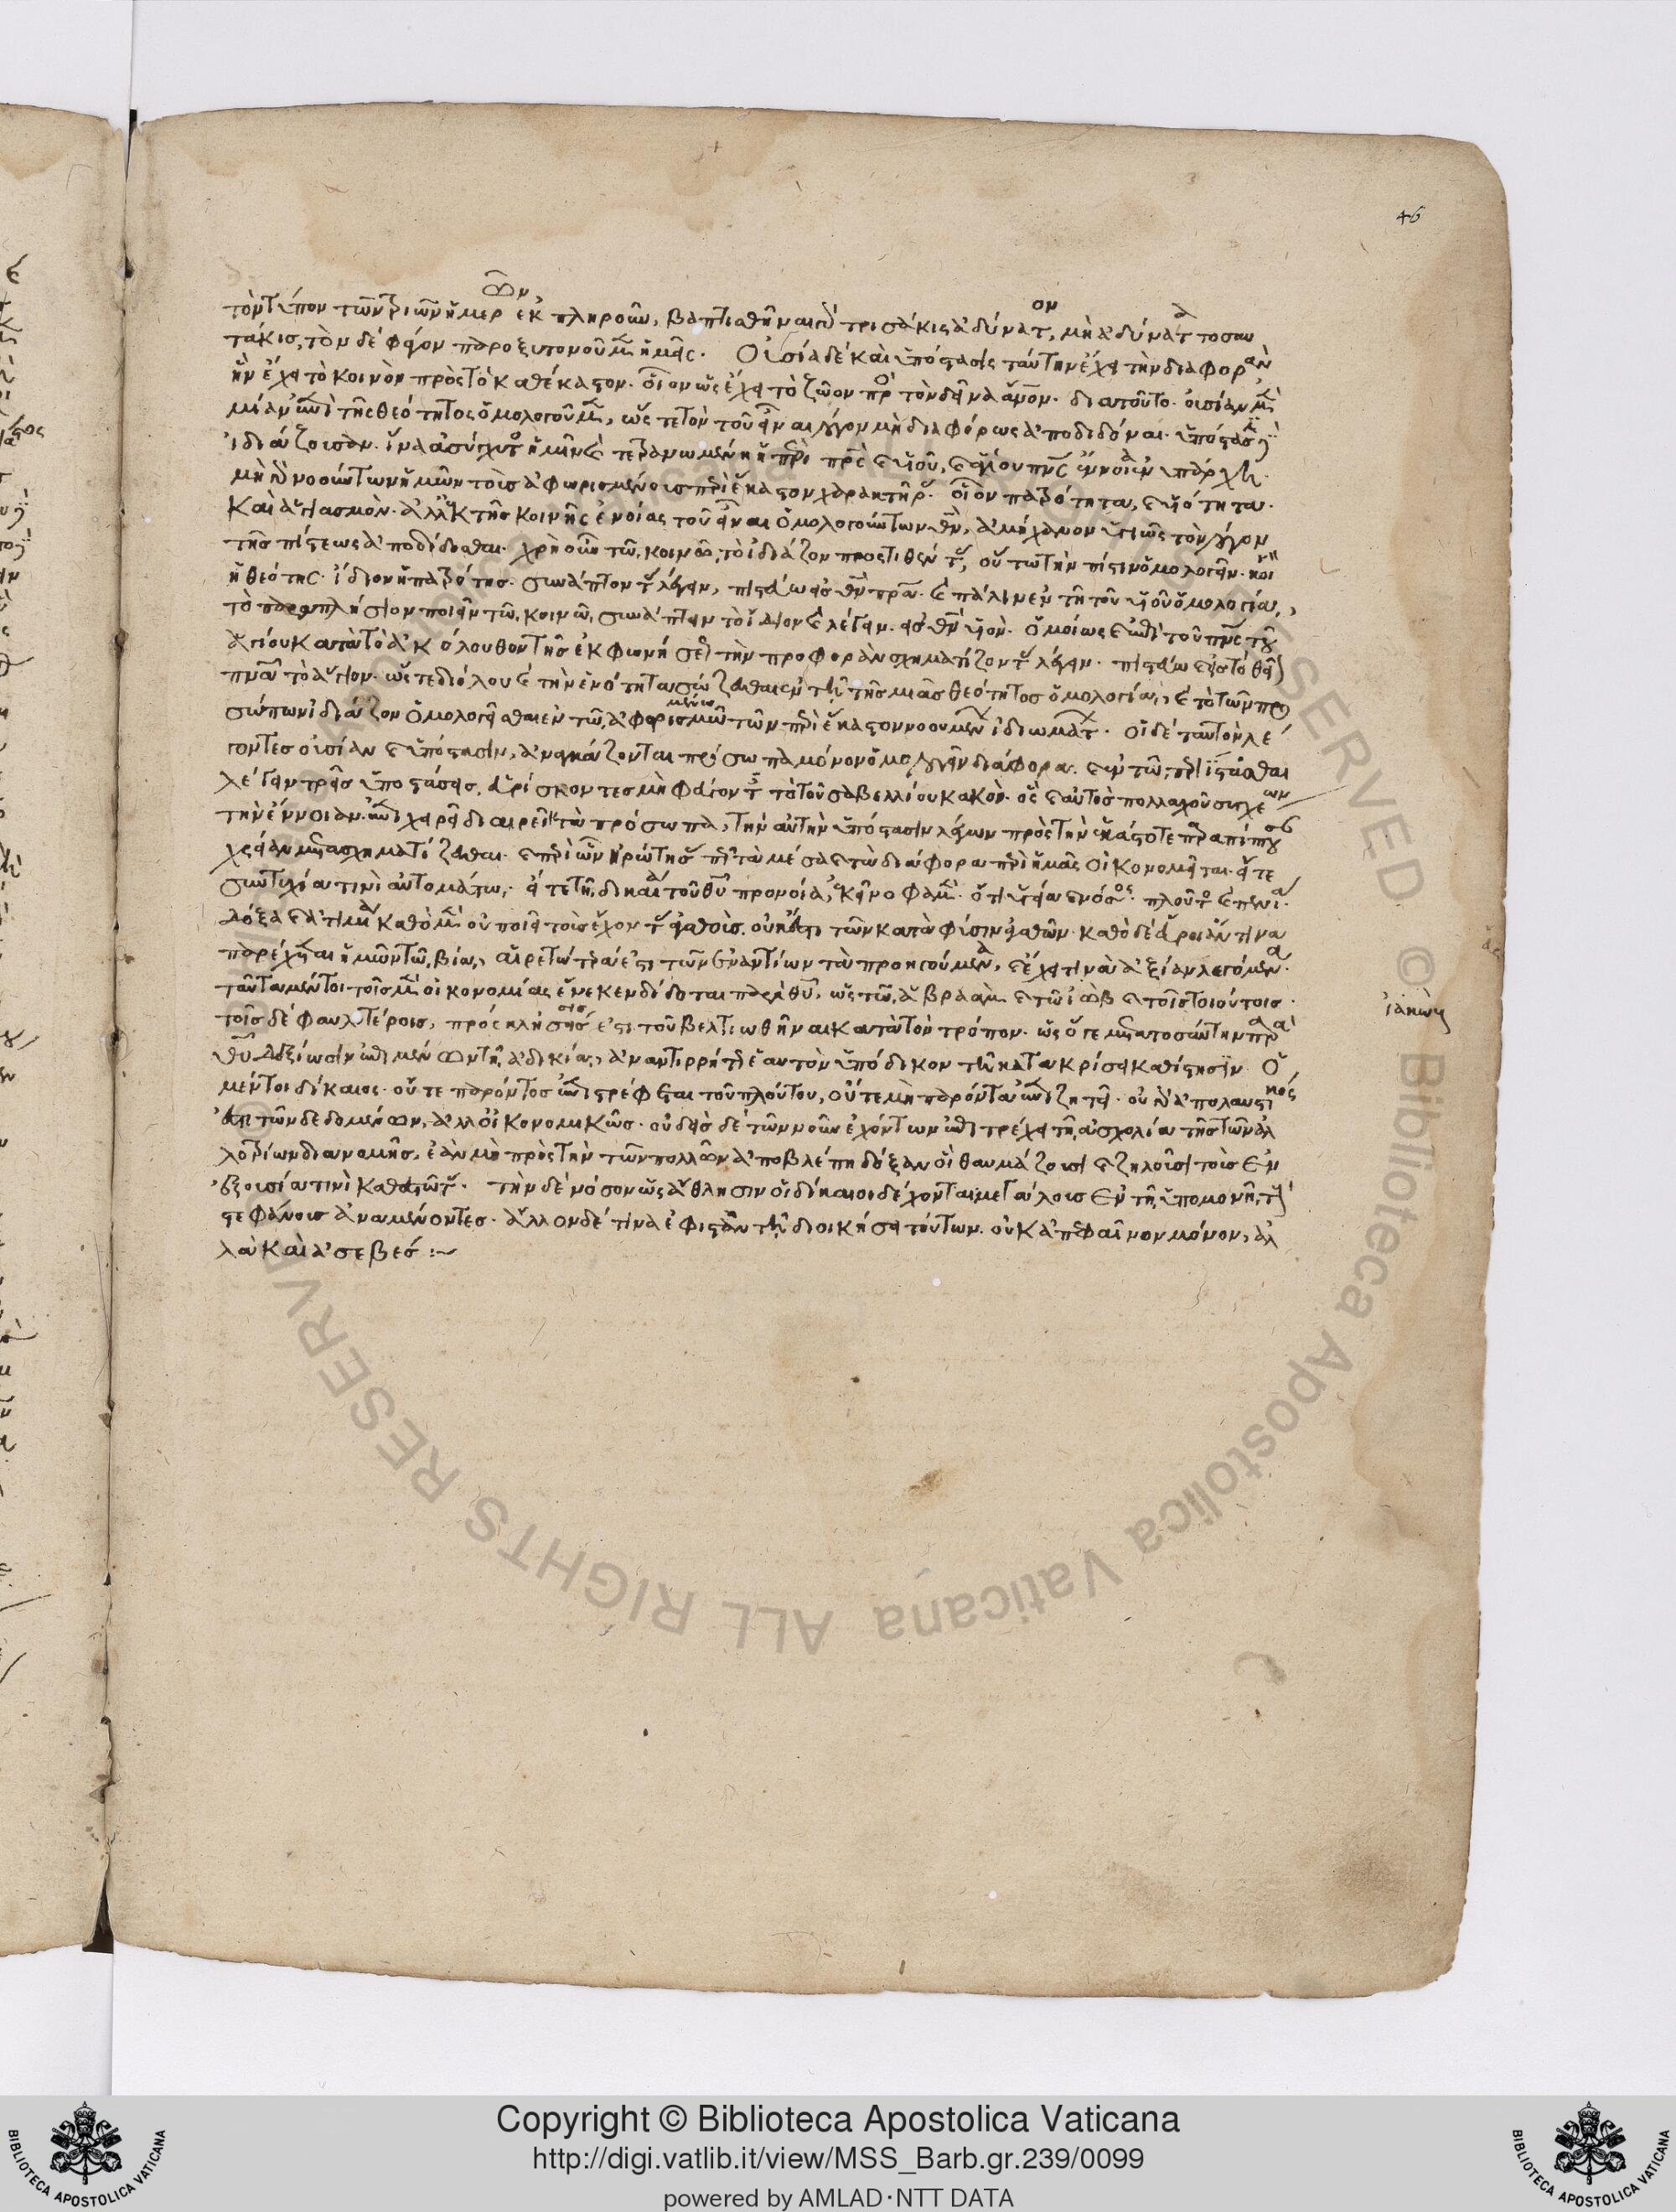 46
τὸν τύπον τῶν τριῶν ἡμερῶν ἐκπληροῦν, βαπτισθῆναι τρισάκις ἀδύνατον, μὴ ἀδύνατα τοσαυ
τάκις, τὸν δὲ παροξυτονοῦμεν ἡμεῖς. Οὐσία δὲ καὶ ὑπόστασις ταύτην ἔχει τὴν διαφορὰν
ἣν ἔχει τὸ κοινὸν πρὸς τὸ καθέκαστον. οἷον ὡς ἔχει τὸ ζῶον πρὸς τὸν δεῖνα ἄνον. διατοῦτο. οὐσίαν μὲν
μίαν ἐπὶ τῆς θεότητος ὁμολογοῦμεν, ὥστε τὸν τοῦ εἶναι λόγον μὴ διαφόρως ἀποδιδόναι. ὑπόστασιν δὲ
ἰδιάζουσαν. ἵνα ἀσύγχυτος ἡμῖν καὶ τετρανωμένη ἡ περὶ πρς καὶ υἱοῦ, καὶ ἁγίου πνς ἔννοια ὑπάρχῃ.
μὴ νοούντων ἡμῶν τοὺς ἀφωρισμένους περὶ ἕκαστον χαρακτῆρας. οἷον πατρότητα, καὶ υἱότητα.
καὶ ἁγιασμόν. ἀλλ' ἐκ τῆς κοινῆς ἐνοίας τοῦ εἶναι ὁμολογούντων θν, ἀμήχανον ὑγιῶς τὸν λόγον
τῆς πίστεως ἀποδίδοσθαι. χρὴ οὖν τῶ κοινῶ, τὸ ἰδιάζον προστιθέντας, οὕτω τὴν πίστιν ὁμολογεῖν. κοινὸν
ἡ θεότης. ἴδιον ἡ πατρότης. συνάπτοντας λέγειν, πιστεύω εἰς θν πρα. καὶ πάλιν ἐν τῆ τοῦ υἱοῦ ὁμολογία,
τὸ παραπλήσιον ποιεῖν τῶ κοινῶ, συνάπτειν τὸ ἴδιον καὶ λέγειν. εἰς θν υἱόν. ὁμοίως καὶ ἐπὶ τοῦ πνς τοῦ
ἁγίου κατὰ τὸ ἀκόλουθον τῆς ἐκφωνήσεως τὴν προφορὰν σχηματίζοντας λέγειν. πιστεύω καὶ εἰς τὸ θεῖον
πνα τὸ ἅγιον. ὥστε διόλου καὶ τὴν ἑνότητα σώζεσθαι ἐν τῆ τῆς μιᾶς θεότητος ὁμολογία, καὶ τὸ τῶν προ
σώπων ἰδιάζον ὁμολογεῖσθαι ἐν τῶ ἀφορισμῶ τῶν περὶ ἕκαστον νοουμένων ἰδιωμάτων. οἱ δὲ ταυτὸν λέ
γοντες οὐσίαν καὶ ὑπόστασιν, ἀναγκάζονται πρόσωπα μόνον ὁμολογεῖν διάφορα. καὶ ἐν τῶ περιΐστασθαι
λέγειν τρεῖς ὑποστάσεις, εὑρίσκονται μὴ φεύγοντες τὸ τοῦ σαβελλίου κακόν. ὃς καὶ αὐτὸς πολλαχοῦ συγχέων
τὴν ἔννοιαν. ἐπιχειρεῖ διαιρεῖν τὰ πρόσωπα, τὴν αὐτὴν ὑπόστασιν λέγων πρὸς τὴν ἑκάστοτε παραπίπτουσαν
χρείαν μετασχηματίζεσθαι. καὶ περὶ ὧν ἠρώτησας περὶ τὰ μέσα καὶ τὰ διάφορα περὶ ἡμᾶς οἰκονομεῖται. εἴτε
συντυχία τινὶ αὐτομάτω, εἴτε τῆ δικαία τοῦ θυ προνοία, ἐκεῖνό φαμεν. ὅτι ὑγεία καὶ νόσος. πλοῦτος καὶ πενία.
δόξα καὶ ἀτιμία καθὸ μὲν οὐ ποιεῖ τοὺς ἔχοντας ἀγαθούς. οὐκ ἔστι τῶν κατὰ φύσιν ἀγαθῶν. καθὸ δὲ εὔροιάν τινα
παρέχεται ἡμῶν τῶ βίω, αἱρετώτερά ἐστι τῶν ἐναντίων τὰ προηγούμενα, καὶ ἔχει τινὰ ἀξίαν λεγόμενα.
ταῦτα μέντοι τοῖς μὲν οἰκονομίας ἕνεκεν δίδοται παρὰ θυ. ὡς τῶ ἀβραὰμ καὶ τῶ ἰὼβ καὶ τοῖς τοιούτοις.
ἰακὼβ
τοῖς δὲ φαυλοτέροις, πρόσκλησίς ἐστι τοῦ βελτιωθῆναι κατὰ τὸν τρόπον. ὡς ὅ γε μετὰ τοσαύτην παρὰ
θυ δεξίωσιν ἐπιμένων τῆ ἀδικία, ἀναντιρρήτως ἑαυτὸν ὑπόδικον τῆ κατακρίσει καθίστησιν. Ὁ
μέντοι δίκαιος. οὔτε παρόντος ἐπιστρέφεται τοῦ πλούτου, οὔτε μὴ παρόντα ἐπιζητεῖ. οὐ γὰρ ἀπολαυστικός
ἐστι τῶν δεδομένων, ἀλλ' οἰκονομικῶς. οὐδεὶς δὲ τῶν νοῦν ἐχόντων ἐπιτρέχει τῆ ἀσχολία τῆς τῶν ἀλ
λοτρίων διανομῆς, ἐὰν μὴ πρὸς τὴν τῶν πολλῶν ἀποβλέπη δόξαν οἳ θαυμάζουσι καὶ ζηλοῦσι τοὺς ἐν
ἐξουσία τινὶ καθεστῶτας. τὴν δὲ νόσον ὡς ἄθλησιν οἱ δίκαιοι δέχονται μεγάλους ἐν τῆ ὑπομονῆ τοὺς
στεφάνους ἀναμένοντες. ἄλλον δέ τινα ἐφιστᾶν τῆ διοικήσει τούτων. οὐκ ἀπεμφαῖνον μόνον, ἀλ
λὰ καὶ ἀσεβές :~
Copyright © Biblioteca Apostolica Vaticana
http://digi.vatlib.it/view/MSS_Barb.gr.239/0099
powered by AMLAD·NTT DATA
BIBLIOTECA APOSTOLICA VATICANA
BIBLIOTECA APOSTOLICA VATICANA